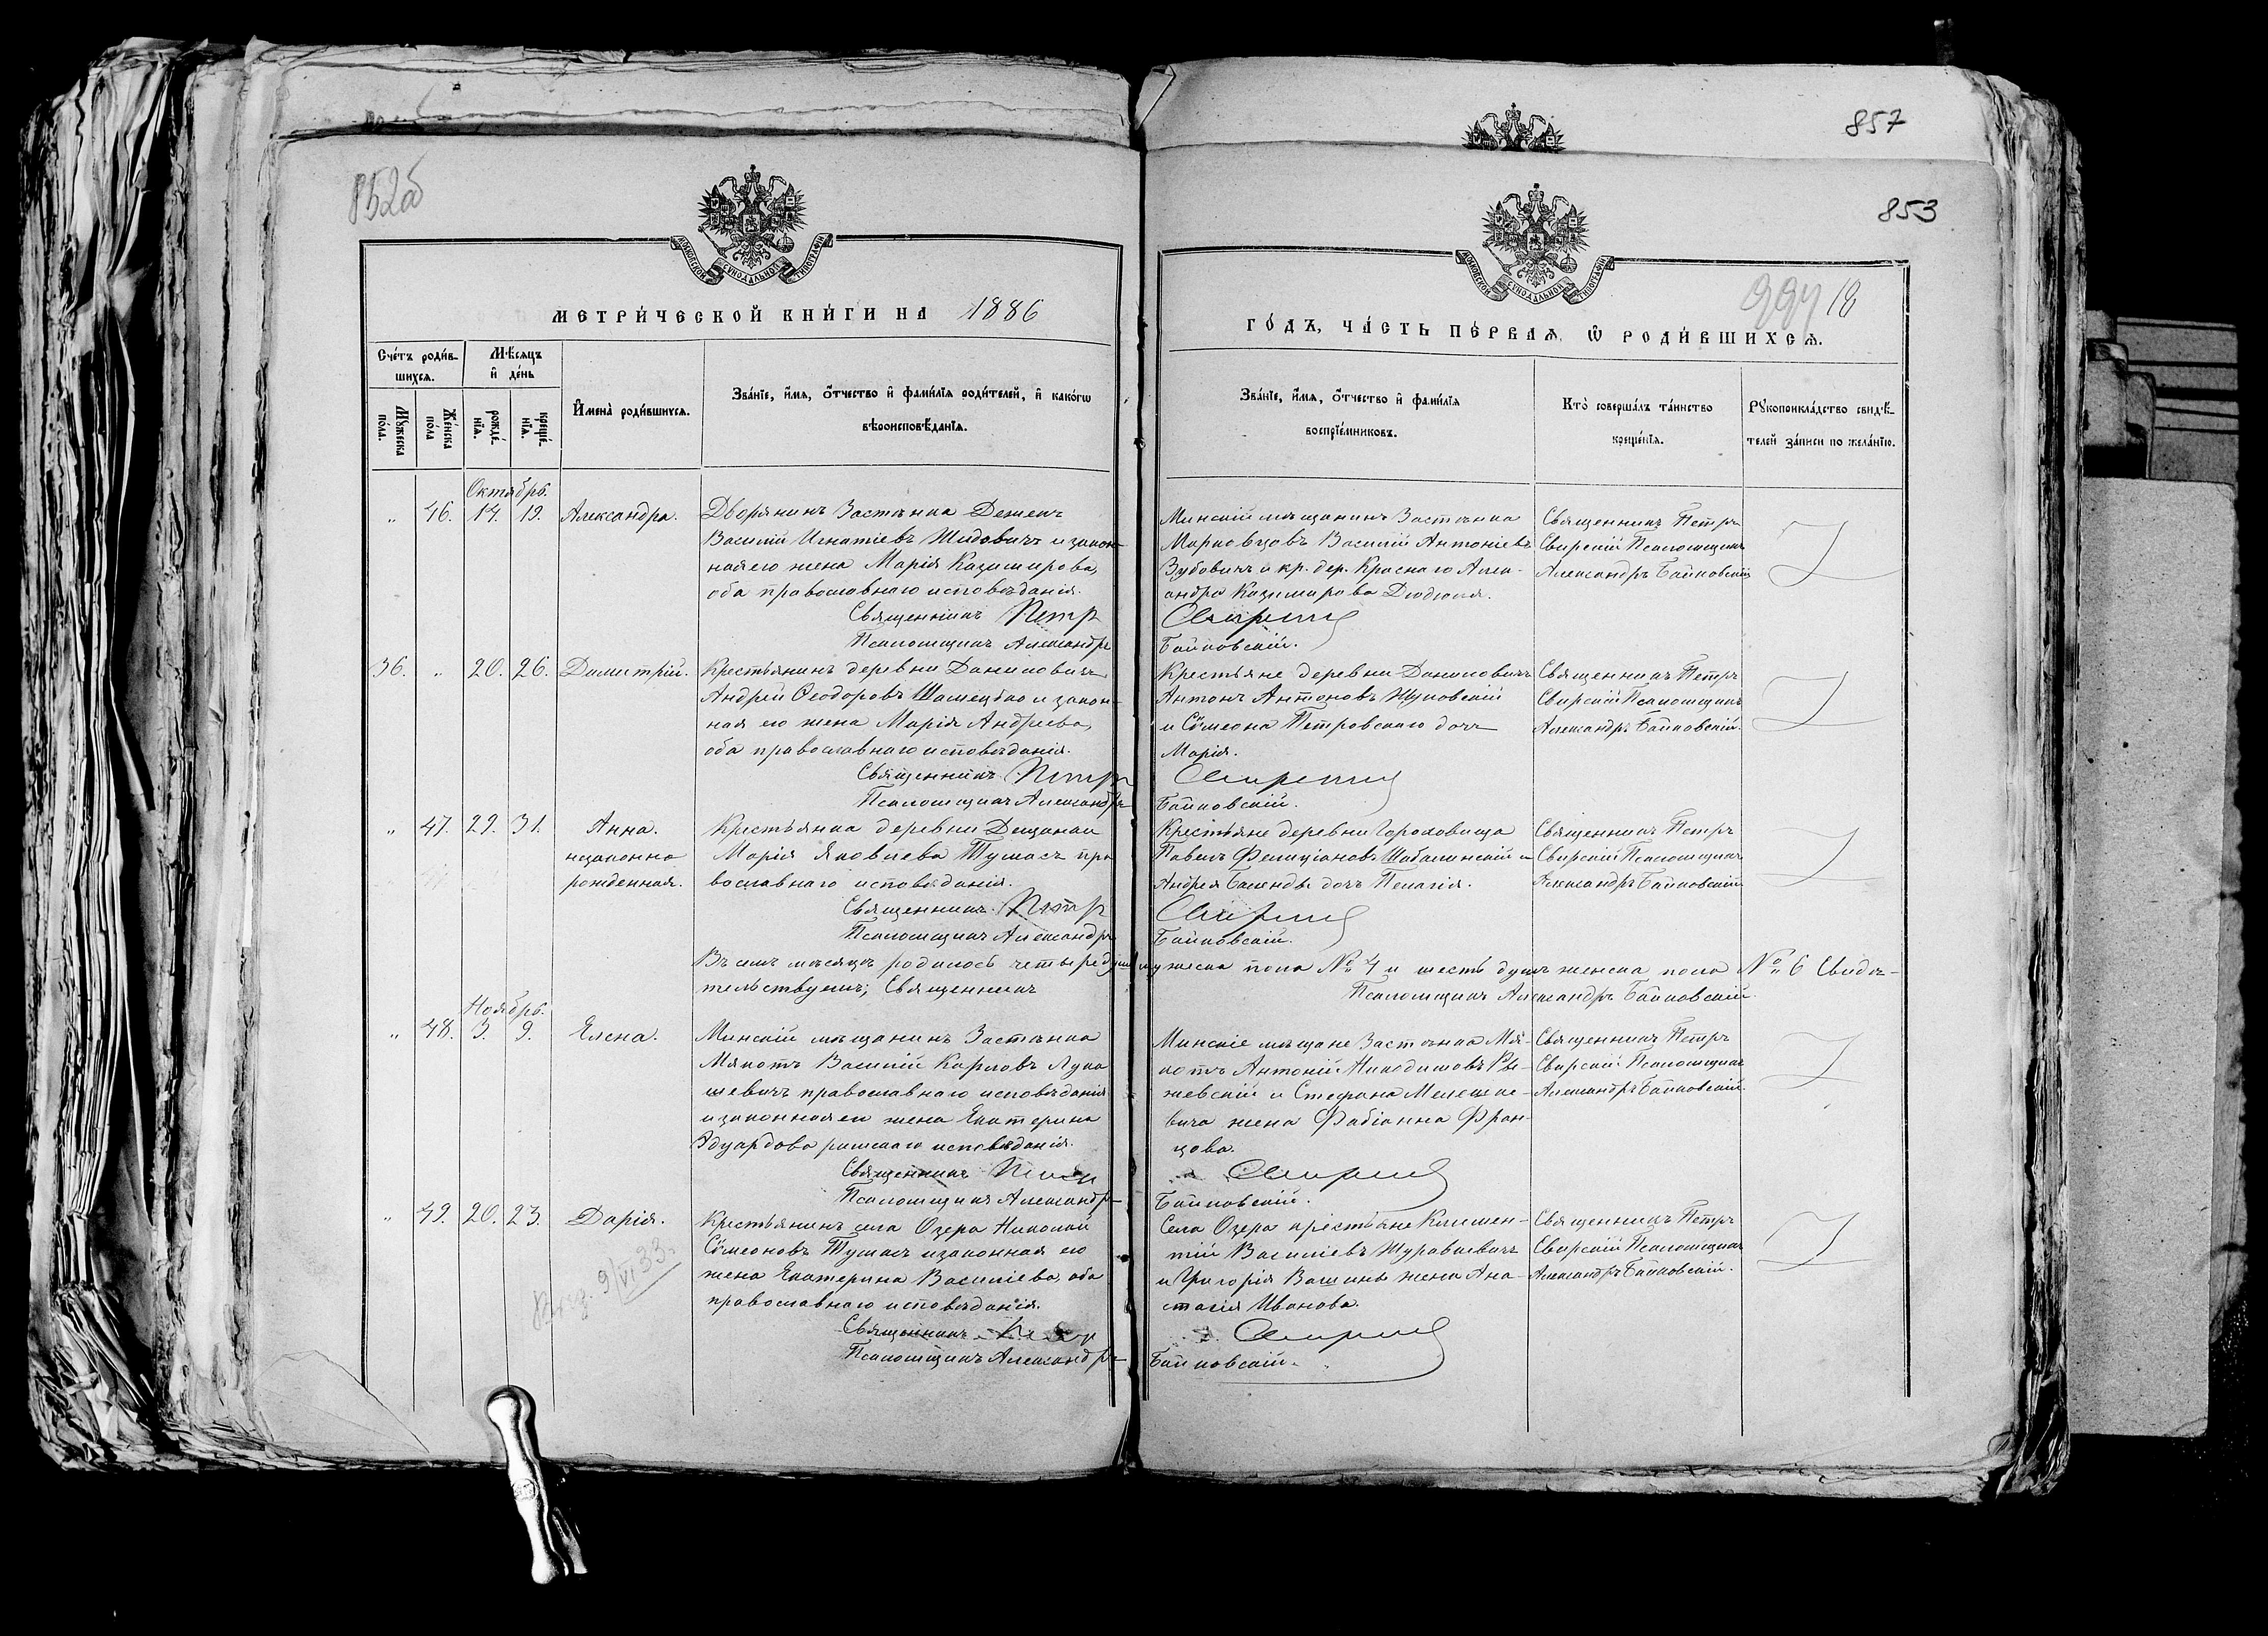 857
852об
853
МОСКОВСКОЙ СѴНОДАЛЬНОЙ ТИПОГРАФІИ
МОСКОВСКОЙ СѴНОДАЛЬНОЙ ТИПОГРАФІИ
МЕТРИ́ЧЕСКОЙ КНИ́ГИ НА 1886
ГО́ДЪ, ЧА́СТЬ ПЕ́РВАЯ, Ѡ҆ РОДИ́ВШИХСЯ.
18
Сче́тъ роди́в-
шихся.
Мѣ́сяцъ
и҆ де́нь
Мꙋ́жеска
по́ла.
Же́нска
по́ла
рожде́-
нїя.
креще́-
нїя.
И҆мена̀ роди́вшихся.
Зва́нїе, и҆́мя, ѻ҆́тчество и҆ фами́лїя роди́телей, и҆ како́гѡ
вѣроисповѣ́данїя.
Зва́нїе, и҆́мя, ѻ҆́тчество и҆ фами́лїя
воспрїе́мниковъ.
Кто̀ соверша́лъ та́инство
креще́нїя.
Рꙋкоприкла́дство свидѣ́-
телей за́писи по жела́нїю.
Октябрь.
" 46. 14. 19. Александра. Дворянинъ Застѣнка
Василій Игнатіевъ Шидовичъ и закон-
ная его жена Марія Казимирова,
оба православнаго исповѣданія.
Священникъ Петръ
Псаломщикъ Александръ
Минскій мѣщанинъ Застѣнка
Василій Антоніевъ
Зубовичъ и кр. дер. Краснаго Алек-
андра Казимирова Дюдюля.
Свирскій
Байковскій.
Священникъ Петръ
Свирскій Псаломщикъ
Александръ Байковскій
36. " 20. 26. Димитрій. Крестьянинъ деревни Даниловичъ
Андрей Ѳеодоровъ и закон-
ная его жена Марія Андреева,
оба православнаго исповѣданія.
Священникъ Петръ
Псаломщикъ Александръ
Крестьяне деревни Даниловичъ
Антонъ Антоновъ Жуковскій
и Сѵмеона Петровскаго дочь
Марія.
Свирскій
Байковскій.
Священникъ Петръ
Свирскій Псаломщикъ
Александръ Байковскій.
" 47. 29. 31. Анна.
незаконно
рожденная.
Крестьянка деревни Дещанки
Марія Яковлева Тумасъ пра-
вославнаго исповѣданія.
Священникъ Петръ
Псаломщикъ Александръ
Крестьяне деревни Гороховища
Павелъ Фелиціановъ Шабалинскій и
Андрея Баленды дочь Пелагія.
Свирскій
Байковскій.
Священникъ Петръ
Свирскій Псаломщикъ
Александръ Байковскій
Въ семъ мѣсяцѣ родилось четыре душъ мужеска пола № 4 и шесть душъ женска пола № 6 Свидѣ-
тельствуемъ; Священникъ
Псаломщикъ Александръ Байковскій
Ноябрь.
" 48. 3. 9. Елена. Минскій мѣщанинъ Застѣнка
Мякоть Василій Карловъ Лука-
шевичъ православнаго исповѣданія
и законная его жена Екатерина
Эдуардова римскаго исповѣданія.
Священникъ Петръ
Псаломщикъ Александръ
Минскіе мѣщане Застѣнка Мя-
коть Антоній Никодимовъ Ры-
жевскій и Стефана Мелешке-
вича жена Фабіанна Фран-
цова.
Свирскій
Байковскій.
Священникъ Петръ
Свирскій Псаломщикъ
Александръ Байковскій.
" 49. 20. 23. Дарія. Крестьянинъ села Озера Николай
Сѵмеоновъ Тумасъ и законная его
жена Екатерина Василіева, оба
православнаго исповѣданія.
9/VI 33.
Священникъ Петръ
Псаломщикъ Александръ
Села Озера крестьяне Климен-
тій Василіевъ Журавлевичъ
и Григорія Вашины жена Ана-
стасія Иванова.
Свирскій
Байковскій.
Священникъ Петръ
Свирскій Псаломщикъ
Александръ Байковскій.